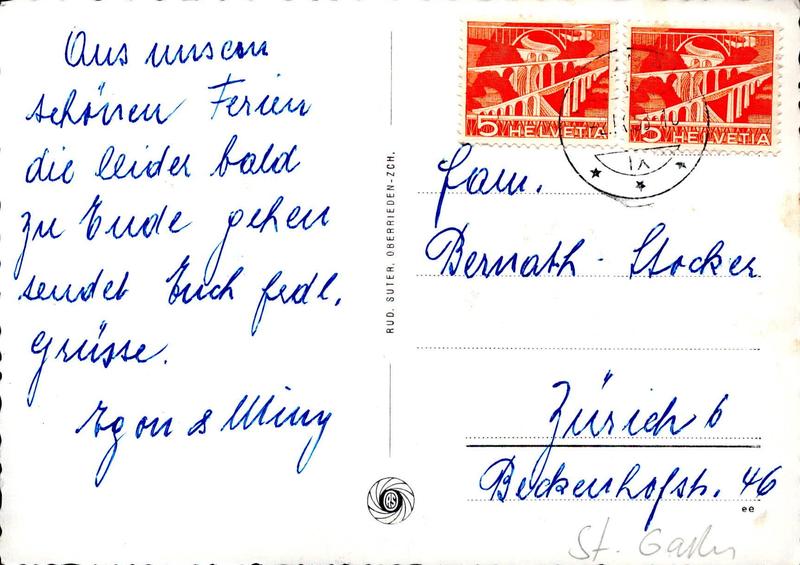 Aus unsern
schönen Ferien
die leider bald
zu Ende gehen
sendet Euch frdl.
Grüsse.
Egon & Miny
RUD. SUTER, OBERRIEDEN-ZCH.
5 HELVETIA
5 HELVETIA
IX
Fam.
Bernath - Stocker
Zürich 6
Beckenhofstr. 46
ee
St. Gallen